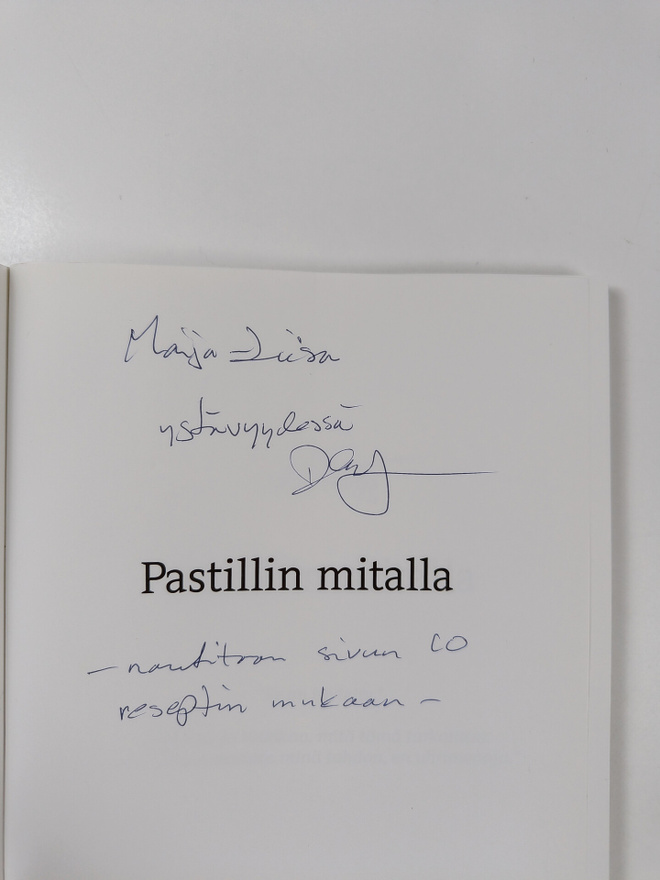 Maija-Liisa
ystävyydessä
Pastillin mitalla
– nautitaan sivun 10
reseptin mukaan –